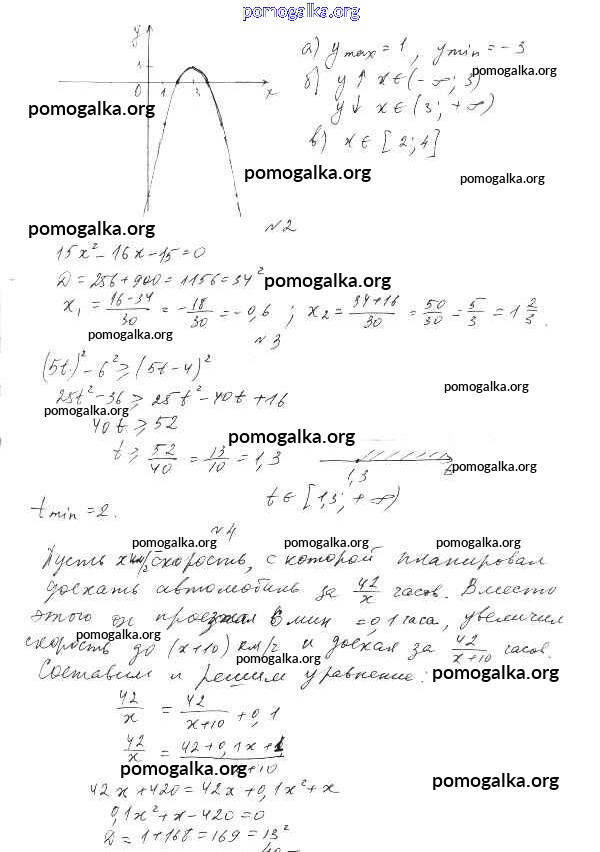 pomogalka.org
y
1
0 1 3 x
а) y max = 1 , y min = -3
pomogalka.org
б) y↑ x∈(-∞; 3)
y↓ x∈(3; +∞)
pomogalka.org
в) x∈[2;4]
pomogalka.org
pomogalka.org
pomogalka.org
№2
15x² - 16x - 15 = 0
D = 256 + 900 = 1156 = 34²
pomogalka.org
x₁ = (16-34)/30 = -18/30 = -0,6 ; x₂ = (34+16)/30 = 50/30 = 5/3 = 1 2/3.
pomogalka.org
№3
(5t)² - 6² ≥ (5t-4)²
pomogalka.org
25t² - 36 ≥ 25t² - 40t + 16
pomogalka.org
40t ≥ 52
pomogalka.org
t ≥ 52/40 = 13/10 = 1,3
pomogalka.org
1,3
t∈[1,3; +∞)
t min = 2.
№4
pomogalka.org pomogalka.org pomogalka.org
Пусть x км/ч скорость, с которой планировал
доехать автомобиль за 42/x часов. Вместо
этого он проезжал 6 мин = 0,1 часа, увеличил
pomogalka.org
скорость до (x+10) км/ч и доехал за 42/(x+10) часов.
pomogalka.org
Составим и решим уравнение:
pomogalka.org
42/x = 42/(x+10) + 0,1
42/x = (42+0,1x+1)/(x+10)
pomogalka.org
pomogalka.org
42x + 420 = 42x + 0,1x² + x
0,1x² + x - 420 = 0
D = 1 + 168 = 169 = 13²